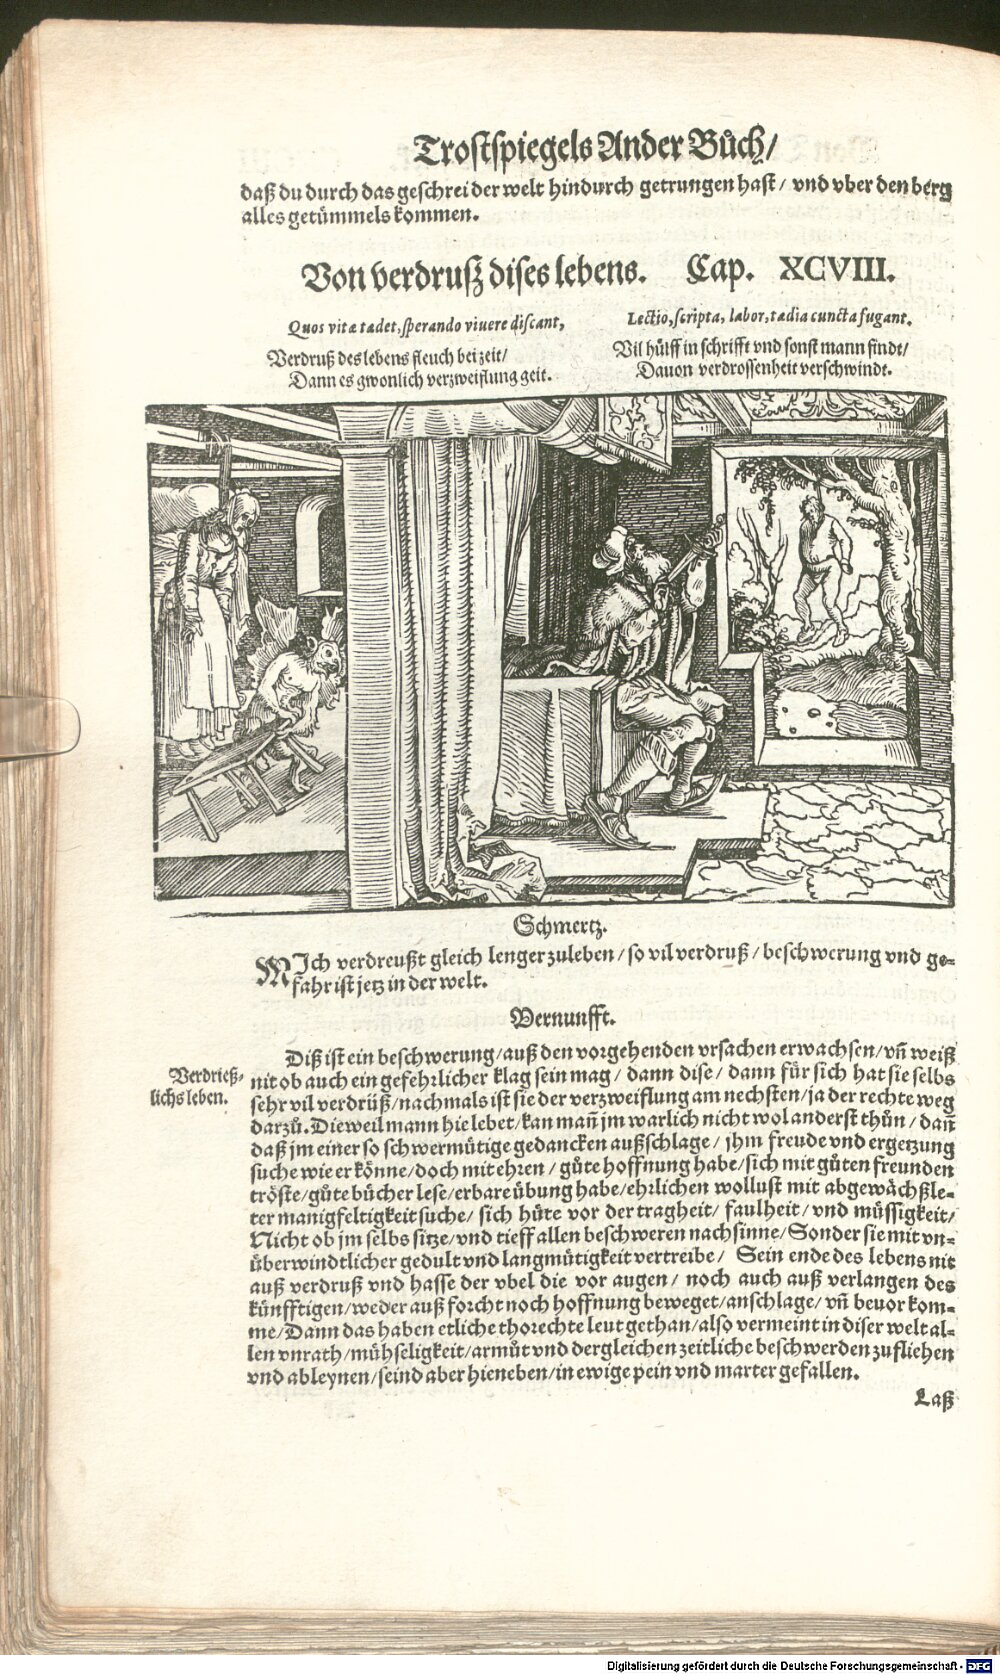 Trostspiegels Ander Bůch/
daß du durch das geschrei der welt hindurch getrungen hast/ vnd vber den berg
alles getümmels kommen.
Von verdrusz dises lebens. Cap. XCVIII.
Quos vitæ tædet, sperando viuere discant,
Verdruß des lebens fleuch bei zeit/
Dann es gwonlich verzweiflung geit.
Lectio, scripta, labor, tædia cuncta fugant.
Vil hülff in schrifft vnd sonst mann findt/
Dauon verdrossenheit verschwindt.
Schmertz.
MIch verdreußt gleich lenger zuleben/ so vil verdruß/ beschwerung vnd ge-
fahr ist jetz in der welt.
Vernunfft.
Diß ist ein beschwerung/ auß den vorgehenden vrsachen erwachsen/ vñ weiß
Verdrieß-
lichs leben.
nit ob auch ein gefehrlicher klag sein mag/ dann dise/ dann für sich hat sie selbs
sehr vil verdrüß/ nachmals ist sie der verzweiflung am nechsten/ ja der rechte weg
darzů. Dieweil mann hie lebet/ kan mañ jm warlich nicht wol anderst thůn/ dañ
daß jm einer so schwermütige gedancken außschlage/ jhm freude vnd ergetzung
suche wie er könne/ doch mit ehren/ gůte hoffnung habe/ sich mit gůten freunden
tröste/ gůte bücher lese/ erbare übung habe/ ehrlichen wollust mit abgewächßle-
ter manigfeltigkeit suche/ sich hüte vor der tragheit/ faulheit/ vnd müssigkeit/
Nicht ob jm selbs sitze/ vnd tieff allen beschweren nachsinne/ Sonder sie mit vn-
überwindtlicher gedult vnd langmütigkeit vertreibe/ Sein ende des lebens nit
auß verdruß vnd hasse der vbel die vor augen/ noch auch auß verlangen des
künfftigen/ weder auß forcht noch hoffnung beweget/ anschlage/ vñ beuor kom-
me/ Dann das haben etliche thorechte leut gethan/ also vermeint in diser welt al-
len vnrath/ mühseligkeit/ armůt vnd dergleichen zeitliche beschwerden zufliehen
vnd ableynen/ seind aber hieneben/ in ewige pein vnd marter gefallen.
Laß
Digitalisierung gefördert durch die Deutsche Forschungsgemeinschaft - DFG